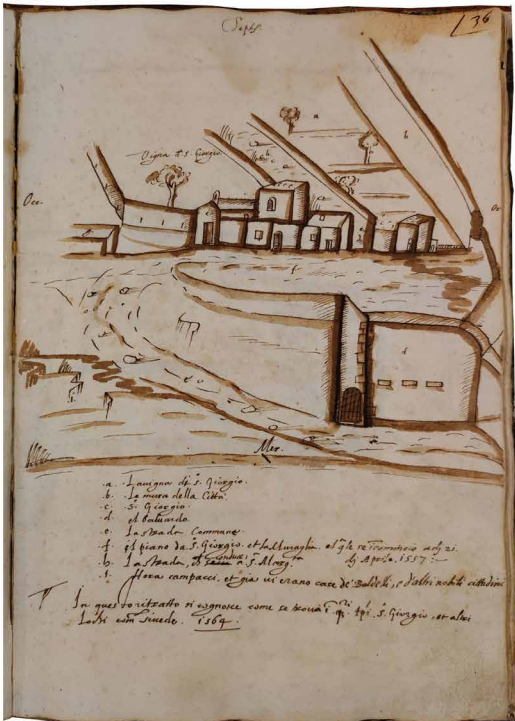 Septe.
136
a
b
Vigna di s. Giorgio
Occ.
Or.
c
f
d
Mer.
.a. La vigna di s. Giorgio.
.b. Le mura della Città.
.c. S. Giorgio
.d. el baluardo.
.e. La strada Commune.
.f. il piano da s. Giorgio. et la Muraglia. el qle se comincio adj 21.
dj Aprile. 1557.
.h. La strada, conduce a s. Marg.ta
.f. Hora campacci, et gia vi erano case de' Baldelli, e d'altri nobili cittadini
In questo ritratto si cognosce come se trova i s. Giorgio, et altri
Lochi com si vede. 1564.